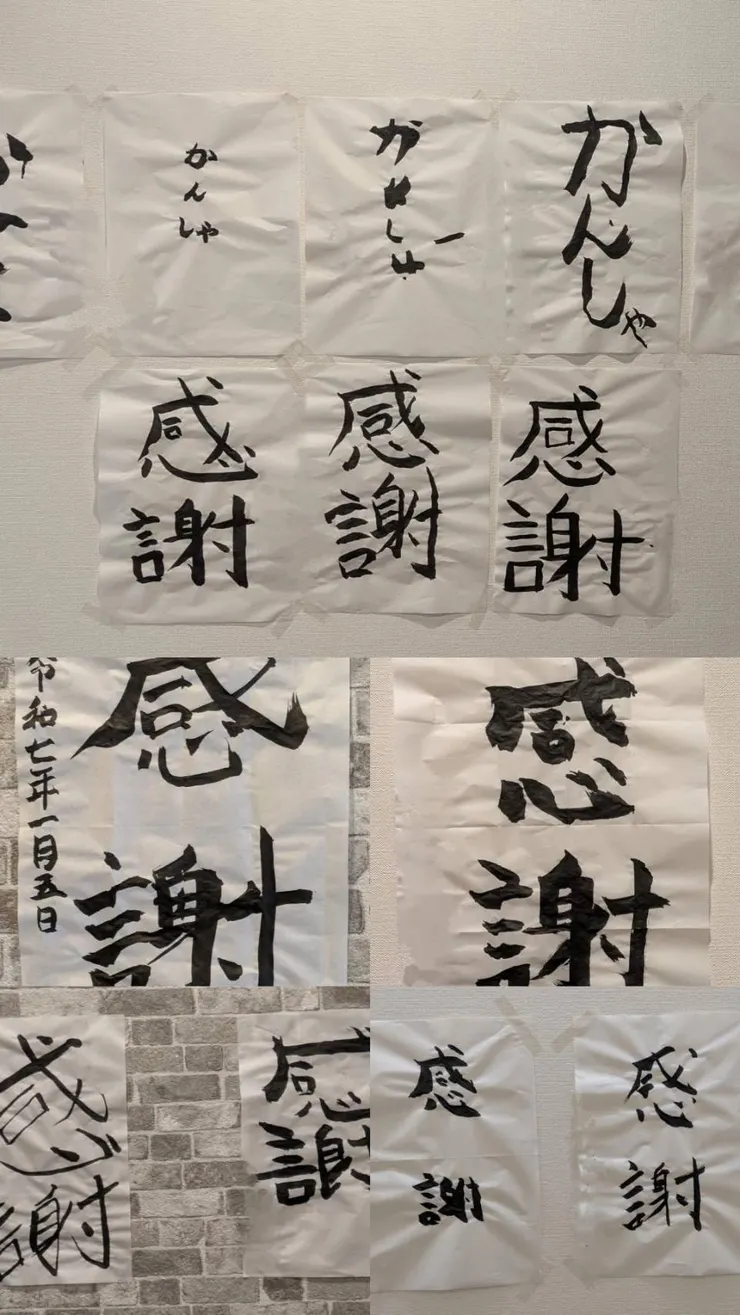 かんしゃ
かんしゃ
かんしゃ
感謝
感謝
感謝
感謝
令和七年一月五日
感謝
感謝
感謝
感謝
感謝